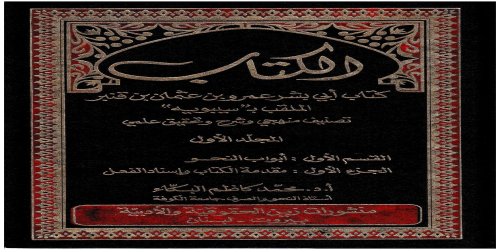 الكتاب
كتاب أبي بشر عمرو بن عثمان بن قنبر
الملقب بـ"سيبويه"
تصنيف منهجي وشرح وتحقيق علمي
المجلد الأول
القسم الأول : أبواب النحو
الجزء الأول : مقدمة الكتاب وإسناد الفعل
أ.د. محمد كاظم البكّاء
أستاذ النحو والصرف جامعة الكوفة
منشورات زين الحقوقية والأدبية
بيروت - لبنان